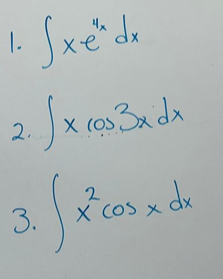 1. ∫ x e^{4x} dx
2. ∫ x cos 3x dx
3. ∫ x² cos x dx